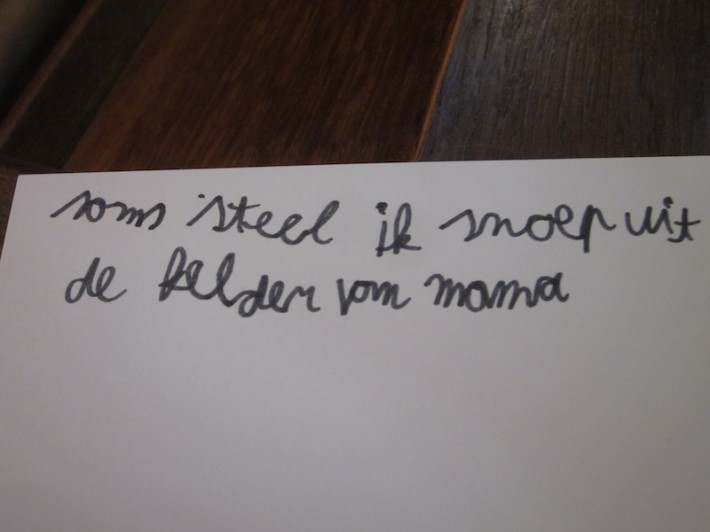 soms steel ik snoep uit
de kelder van mama